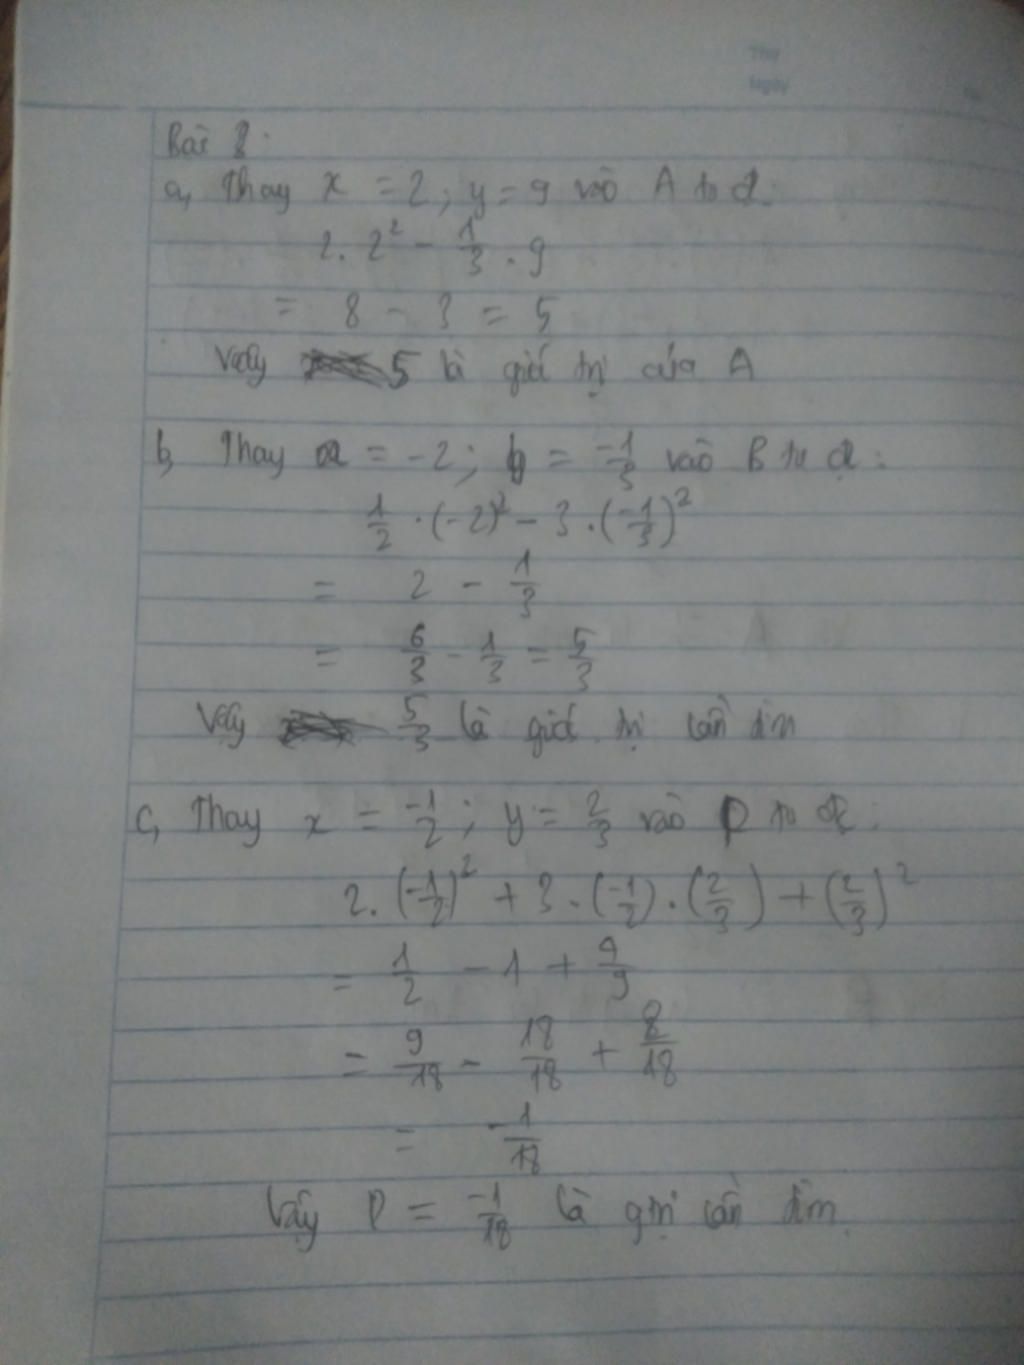 Thứ
Ngày
Bài 8:
a, Thay x = 2 ; y = 9 vào A ta đ.
2. 2² - 1/3 . 9
= 8 - 3 = 5
Vậy 5 là giá trị của A
b, Thay a = -2 ; b = -1/3 vào B ta đ :
1/2 . (-2)² - 3 . (-1/3)²
= 2 - 1/3
= 6/3 - 1/3 = 5/3
Vậy 5/3 là giá trị cần tìm
c, Thay x = -1/2 ; y = 2/3 vào P ta đ :
2. (-1/2)² + 3 . (-1/2) . (2/3) + (2/3)²
= 1/2 - 1 + 4/9
= 9/18 - 18/18 + 8/18
= -1/18
Vậy P = -1/18 là gtrị cần tìm.